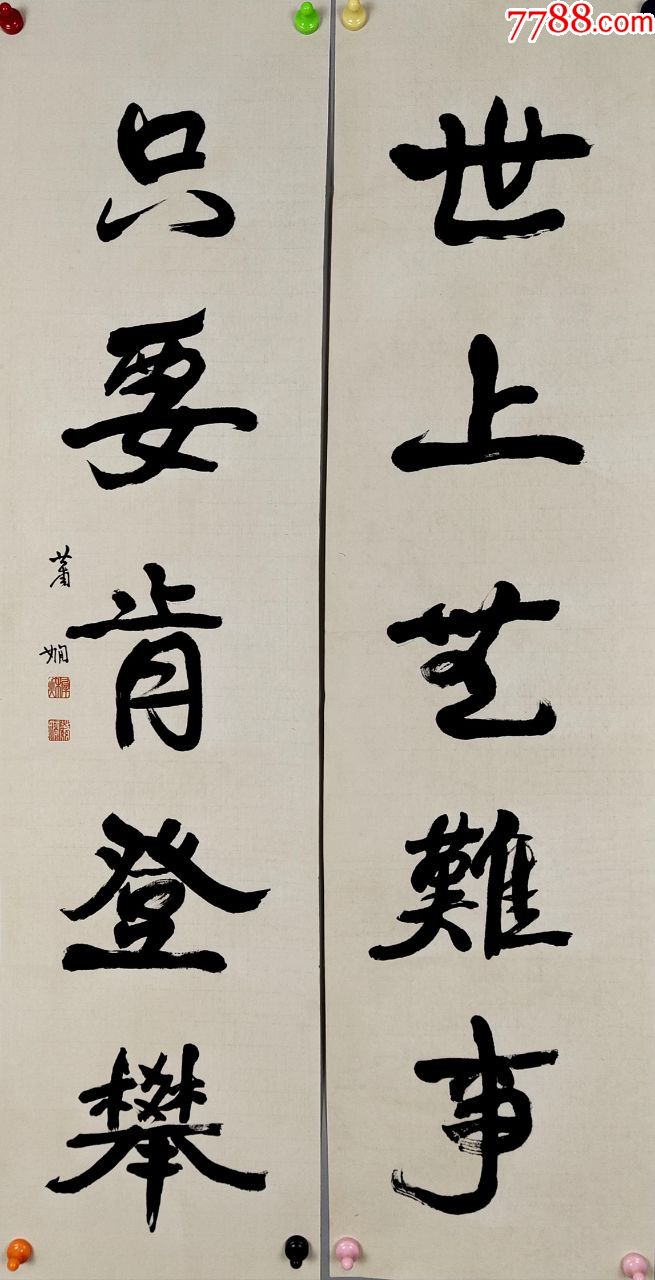 7788.com
世上無難事
只要肯登攀
蕭嫻